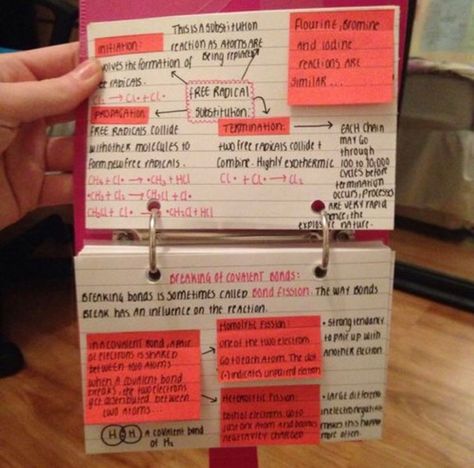 THIS IS A SUBSTITUTION
REACTION AS ATOMS ARE
BEING REPLACED
INITIATION:
INVOLVES THE FORMATION OF
FREE RADICALS.
Cl₂ → Cl• + Cl•
FREE RADICAL
SUBSTITUTION:
FLOURINE, BROMINE
AND IODINE
REACTIONS ARE
SIMILAR...
PROPAGATION:
FREE RADICALS COLLIDE
WITH OTHER MOLECULES TO
FORM NEW FREE RADICALS.
CH₄ + Cl• → •CH₃ + HCl
•CH₃ + Cl₂ → CH₃Cl + Cl•
CH₃Cl + Cl• → •CH₂Cl + HCl
TERMINATION:
TWO FREE RADICALS COLLIDE +
COMBINE. HIGHLY EXOTHERMIC
Cl• + Cl• → Cl₂
EACH CHAIN
MAY GO
THROUGH
100 TO 10,000
CYCLES BEFORE
TERMINATION
OCCURS, PROCESSES
ARE VERY RAPID
HENCE, THE
EXPLOSIVE NATURE.
BREAKING OF COVALENT BONDS:
BREAKING BONDS IS SOMETIMES CALLED BOND FISSION. THE WAY BONDS
BREAK HAS AN INFLUENCE ON THE REACTION.
IN A COVALENT BOND, A PAIR
OF ELECTRONS IS SHARED
BETWEEN TWO ATOMS
WHEN A COVALENT BOND
BREAKS, THE TWO ELECTRONS
GET DISTRIBUTED BETWEEN
TWO ATOMS...
HOMOLYTIC FISSION:
ONE OF THE TWO ELECTRON
GO TO EACH ATOM. THE DOT
(•) INDICATES UNPAIRED ELECTRON
• STRONG TENDANCY
TO PAIR UP WITH
ANOTHER ELECTRON
HETEROLYTIC FISSION:
BOTH OF ELECTRONS GO TO
JUST ONE ATOM AND BECOMES
NEGATIVELY CHARGED
• LARGE DIFFERENCE
IN ELECTRONEGATIVITY
MAKES THIS HAPPEN
MORE OFTEN.
H H A COVALENT BOND
OF H₂